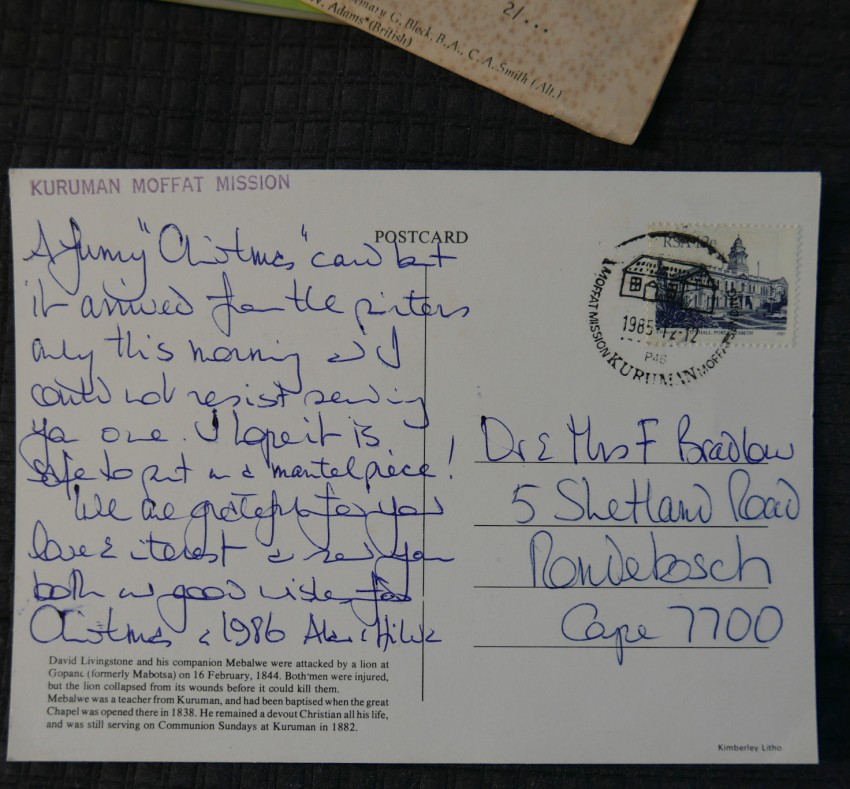 2/...
Rosemary G. Block, B.A., C. A. Smith (Alt.)
Adams (British)
KURUMAN MOFFAT MISSION
POSTCARD
A funny "Christmas" card but
it arrived from the printers
only this morning & I
could not resist sending
you one. I hope it is
safe to put on a mantelpiece!
We are grateful for your
love & interest & send you
both our good wishes for
Christmas & 1986 Alan & Hilda
David Livingstone and his companion Mebalwe were attacked by a lion at
Gopane (formerly Mabotsa) on 16 February, 1844. Both men were injured,
but the lion collapsed from its wounds before it could kill them.
Mebalwe was a teacher from Kuruman, and had been baptised when the great
Chapel was opened there in 1838. He remained a devout Christian all his life,
and was still serving on Communion Sundays at Kuruman in 1882.
RSA 12c
MOFFAT MISSION
1985-12-12
P46
KURUMAN
Dr & Mrs F Bradlow
5 Shetland Road
Rondebosch
Cape 7700
Kimberley Litho